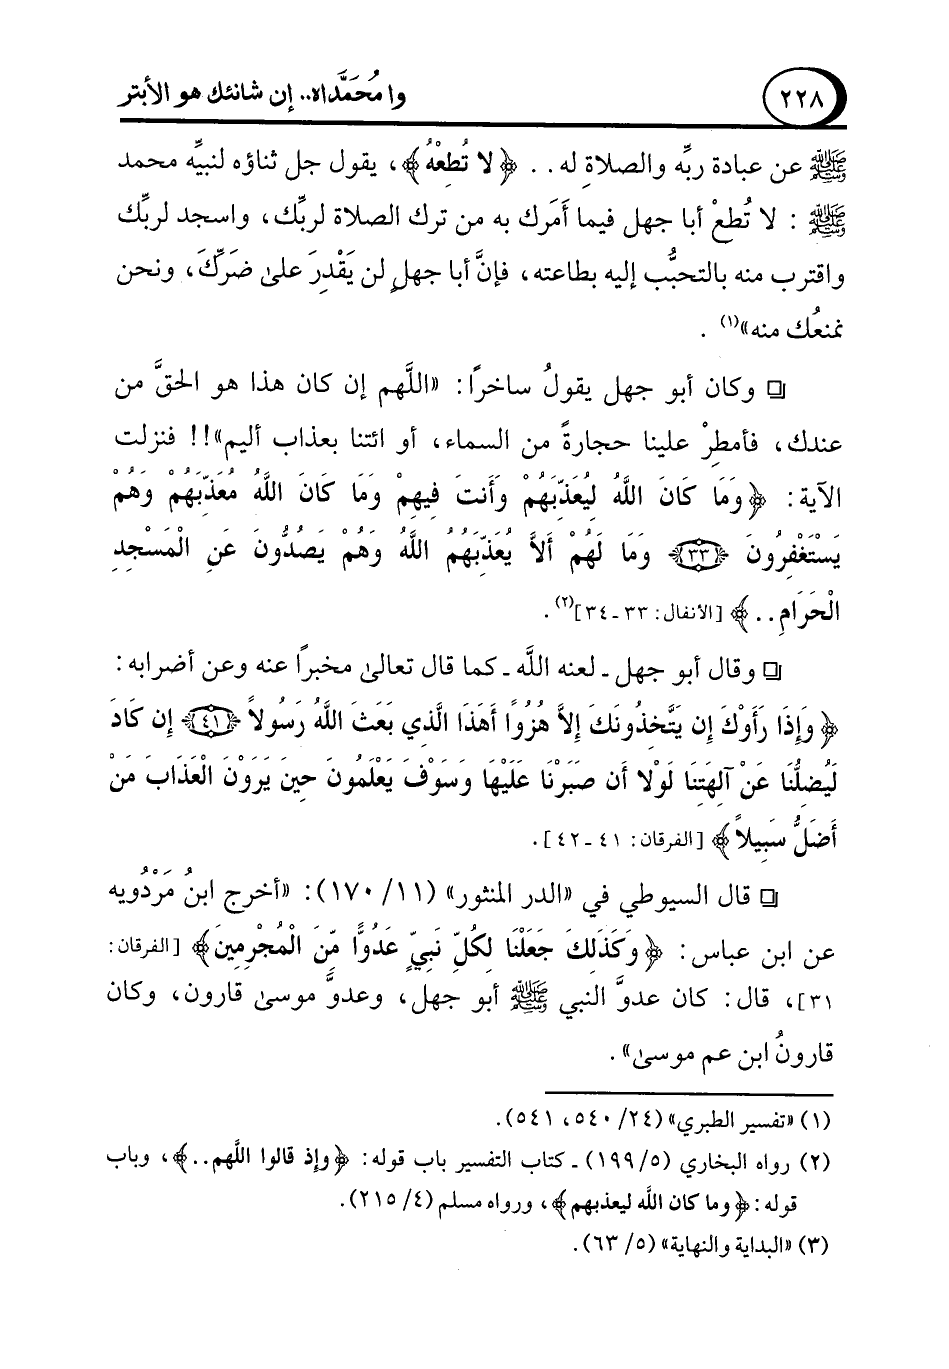 ٢٢٨
وا مُحَمَّداه.. إن شانئك هو الأبتر
ﷺ عن عبادة ربِّه والصلاةِ له . . ﴿لا تُطِعْهُ﴾، يقول جل ثناؤه لنبيِّه محمد
ﷺ : لا تُطعْ أبا جهل فيما أَمَرك به من ترك الصلاة لربِّك، واسجد لربِّك
واقترب منه بالتحبُّب إليه بطاعته، فإنَّ أبا جهلٍ لن يَقْدِرَ على ضَرِّكَ، ونحن
نمنعُك منه»(١) .
❏ وكان أبو جهل يقولُ ساخرًا: «اللَّهم إن كان هذا هو الحقَّ من
عندك، فأمطِرْ علينا حجارةً من السماء، أو ائتنا بعذاب أليم»!! فنزلت
الآية: ﴿وَمَا كَانَ اللَّهُ لِيُعَذِّبَهُمْ وَأَنتَ فِيهِمْ وَمَا كَانَ اللَّهُ مُعَذِّبَهُمْ وَهُمْ
يَسْتَغْفِرُونَ ﴿٣٣﴾ وَمَا لَهُمْ أَلاَّ يُعَذِّبَهُمُ اللَّهُ وَهُمْ يَصُدُّونَ عَنِ الْمَسْجِدِ
الْحَرَامِ . . ﴾ [الأنفال: ٣٣ ـ ٣٤](٢) .
❏ وقال أبو جهل ـ لعنه اللَّه ـ كما قال تعالى مخبرًا عنه وعن أضرابه:
﴿وَإِذَا رَأَوْكَ إِن يَتَّخِذُونَكَ إِلاَّ هُزُوًا أَهَذَا الَّذِي بَعَثَ اللَّهُ رَسُولاً ﴿٤١﴾ إِن كَادَ
لَيُضِلُّنَا عَنْ آلِهَتِنَا لَوْلا أَن صَبَرْنَا عَلَيْهَا وَسَوْفَ يَعْلَمُونَ حِينَ يَرَوْنَ الْعَذَابَ مَنْ
أَضَلُّ سَبِيلاً﴾ [الفرقان: ٤١ ـ ٤٢].
❏ قال السيوطي في «الدر المنثور» (١١/ ١٧٠): «أخرج ابنُ مَرْدُويه
عن ابن عباس: ﴿وَكَذَلِكَ جَعَلْنَا لِكُلِّ نَبِيٍّ عَدُوًّا مِّنَ الْمُجْرِمِينَ﴾ [الفرقان:
٣١]، قال: كان عدوَّ النبي ﷺ أبو جهل، وعدوَّ موسى قارون، وكان
قارونُ ابن عم موسى» .
(١) «تفسير الطبري» (٢٤/ ٥٤٠، ٥٤١).
(٢) رواه البخاري (٥/ ١٩٩) ـ كتاب التفسير باب قوله: ﴿وإذ قالوا اللَّهم . .﴾، وباب
قوله: ﴿وما كان اللَّه ليعذبهم﴾، ورواه مسلم (٤/ ٢١٥).
(٣) «البداية والنهاية» (٥/ ٦٣).